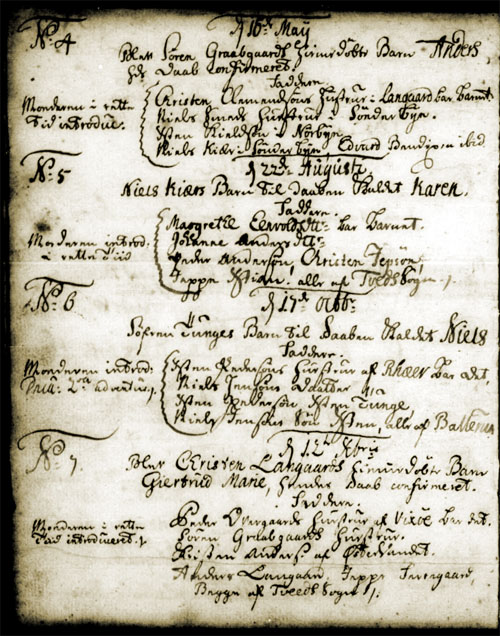 No. 4
d 16de May
blev Søren Graabgaards hiemedøbte Barn Anders
hds Daab Confirmeret.
Faddere.
Moderen i rette
Tid introdue.
Christen Clemensøns Hustrue i Langaard bar barnet
Niels Hustrue i Sønderbye.
Sten Nielsen i Norbye.
Niels Kiær i Sønderbye, Edvard Bendixen ibid
No. 5
d 22de Augusti
Niels Kiærs Barn til Daaben kaldet Karen.
Faddere.
Moderen introd:
i rette Tiid
Margrethe bar barnet.
Johanne Andersdtr
Peder Andersøn, Christen Jepsøn,
Jeppe alle af Tveeds Sogn.
No. 6
d 17de octbr
Søfren Tunges Barn til Daaben kaldet Niels
Faddere
Moderen introd:
2da adventus.
Sten Pedersøns Hustrue af Rhæer bar det,
Niels Jensøns Daatter
Sten Pedersøn Sten Tunge,
Niels Jensøns Søn Sten, alle af Ballerum
No. 7
d 12 Xbris
blev Christen Langaards hiemedøbte Barn
Giertrud Marie, hendes Daab confirmeret.
Faddere.
Moderen i rette
Tiid introduceret.
Peder Overgaards Hustrue af Vixøe bar det.
Søren Graabgaards Hustrue.
Christen Anders: af Østervandet.
Anders Langaar Jeppe
Begge af Tveeds Sogn